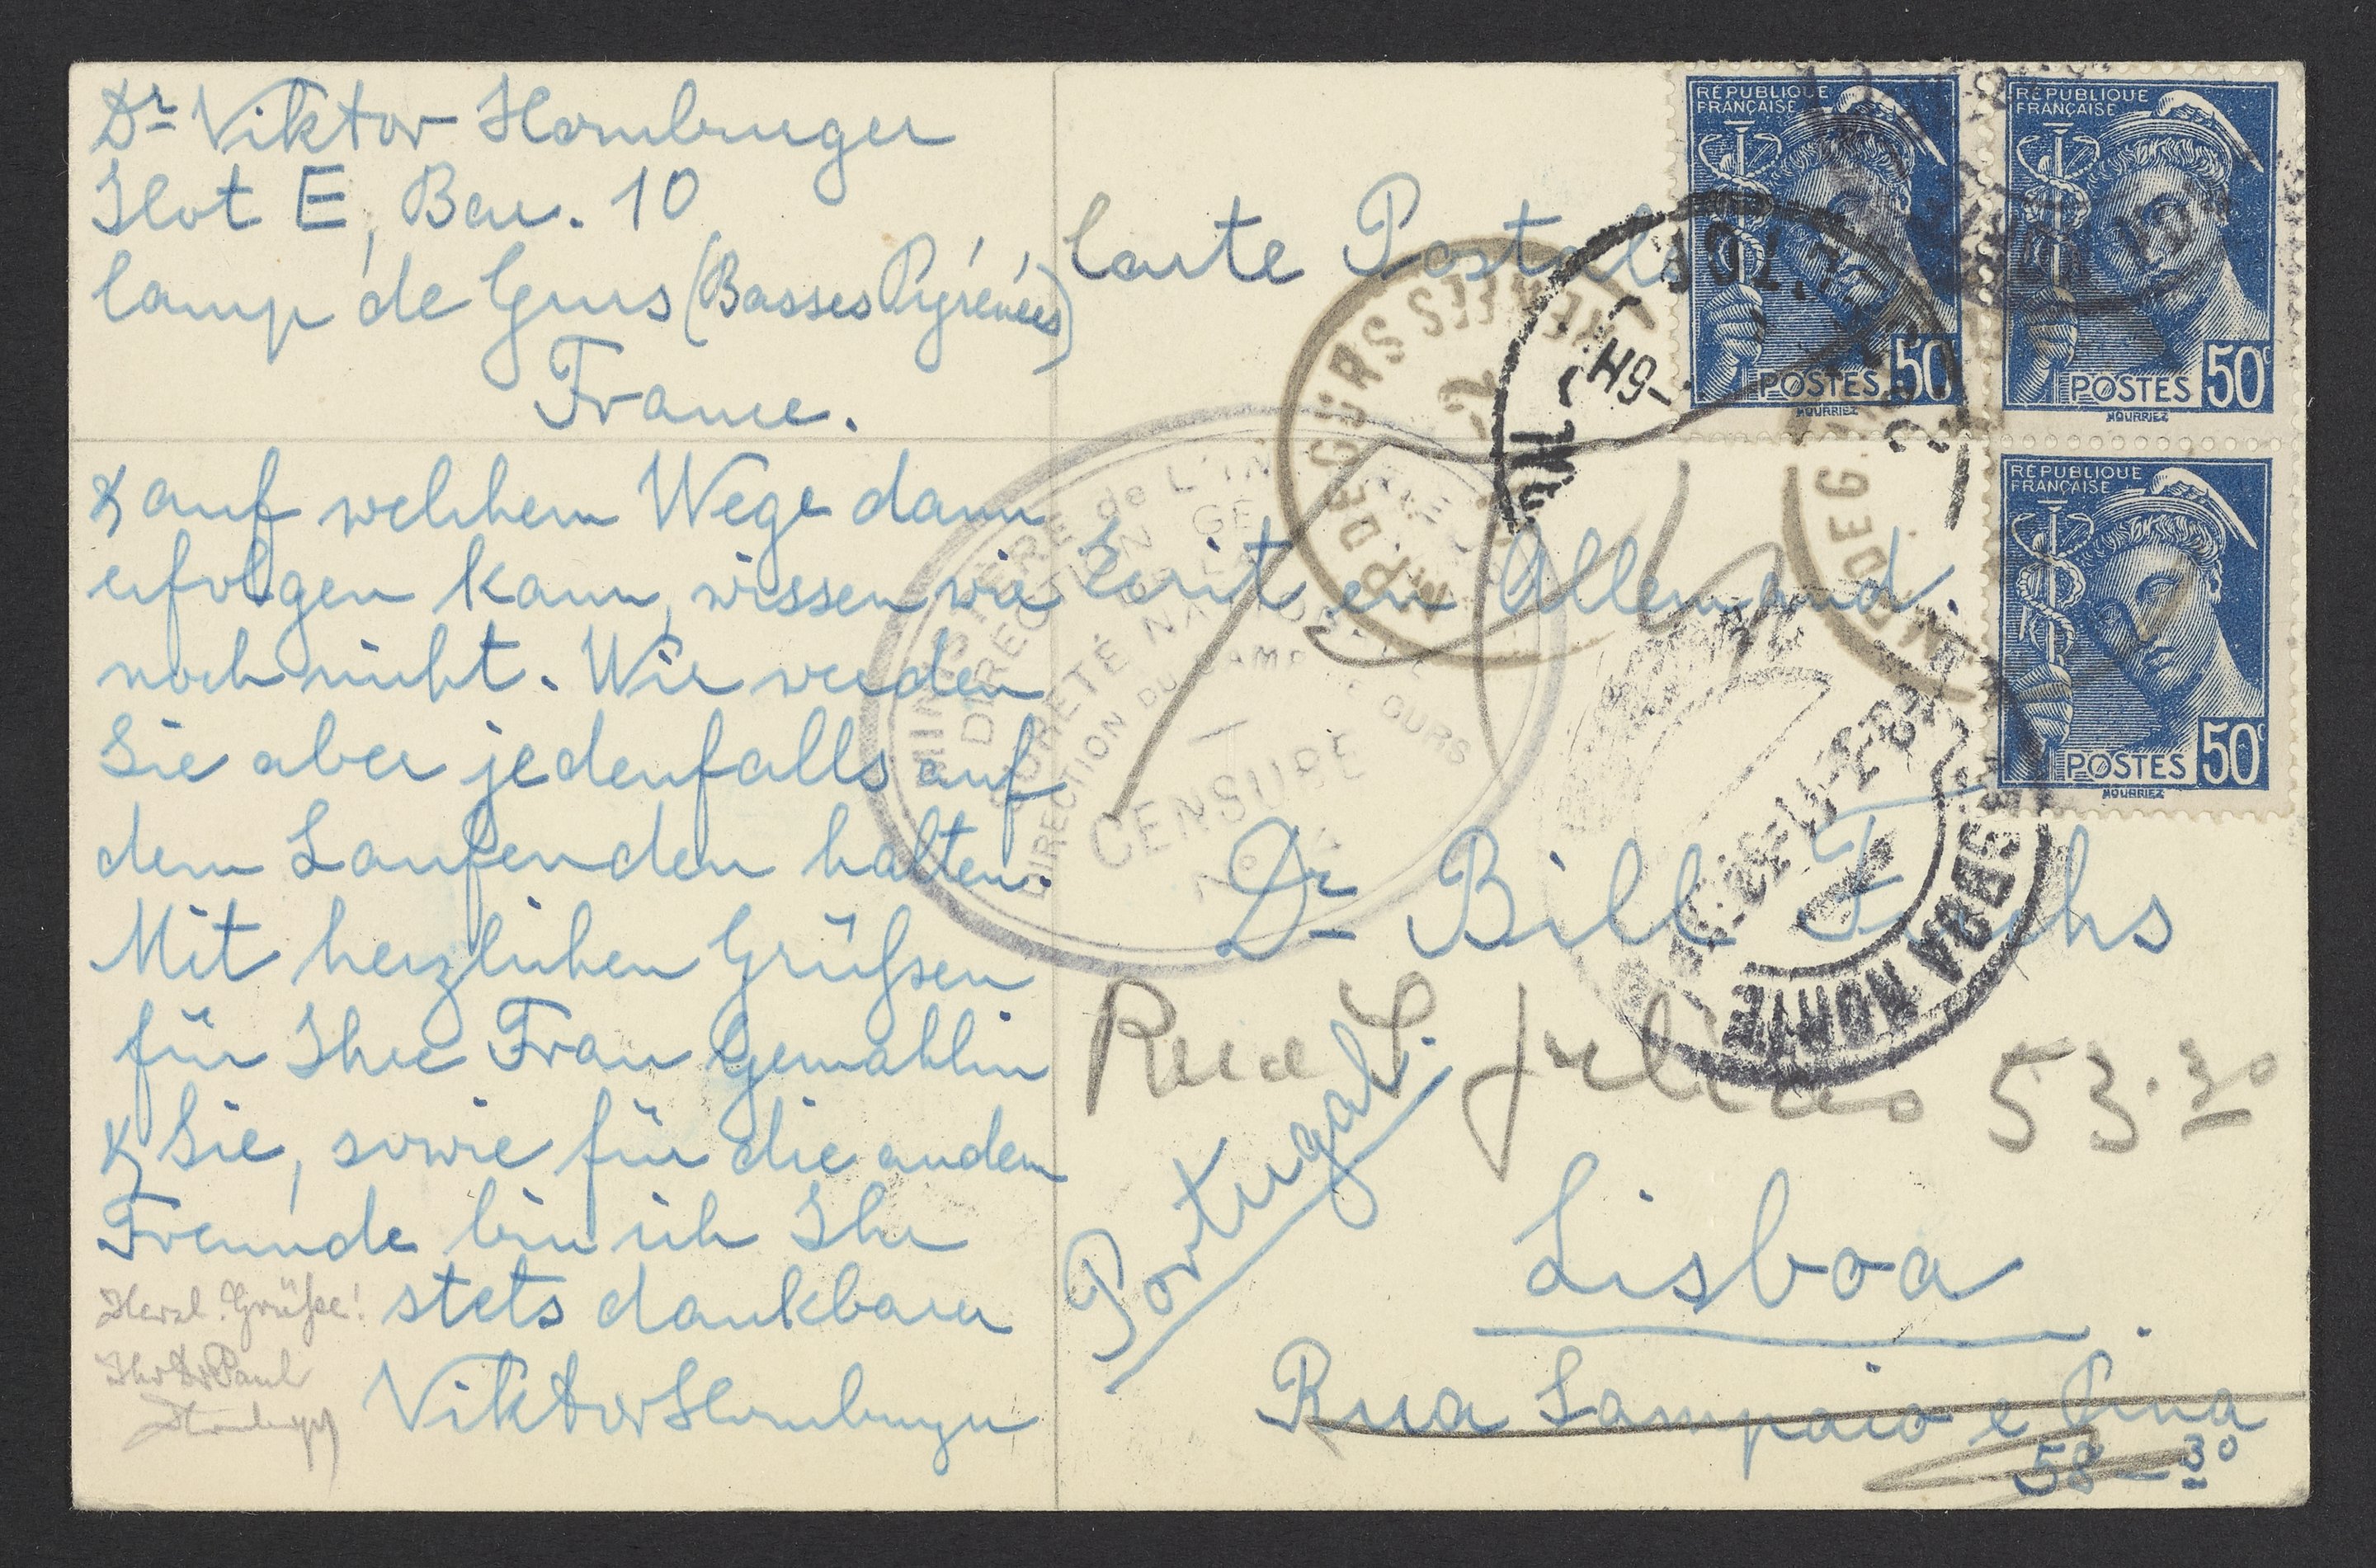 Dr Viktor Homburger
Ilot E, Bar. 10
Camp de Gurs (Basses Pyrénées)
France.
& auf welchem Wege dann
erfolgen kann, wissen wir
noch nicht. Wir werden
Sie aber jedenfalls auf
dem Laufenden halten.
Mit herzlichen Grüßen
für Ihre Frau Gemahlin
& Sie, sowie für die andern
Freunde bin ich Ihr
stets dankbarer
Viktor Homburger
Herzl. Grüße!
Ihr Dr Paul
Homburger
Carte Postale
Écrit en Allemand.
Dr Bill Fuchs
Rua S. Julião 53.3º
Portugal.
Lisboa.
Rua Sampaio e Pina
58-3º
RÉPUBLIQUE
FRANÇAISE
POSTES 50c
MOURRIEZ
RÉPUBLIQUE
FRANÇAISE
POSTES 50c
MOURRIEZ
RÉPUBLIQUE
FRANÇAISE
POSTES 50c
MOURRIEZ
MINISTÈRE de L'IN
DIRECTION GÉ
SURETÉ NATIONALE
DIRECTION DU CAMP DE GURS
CENSURE
DE GURS